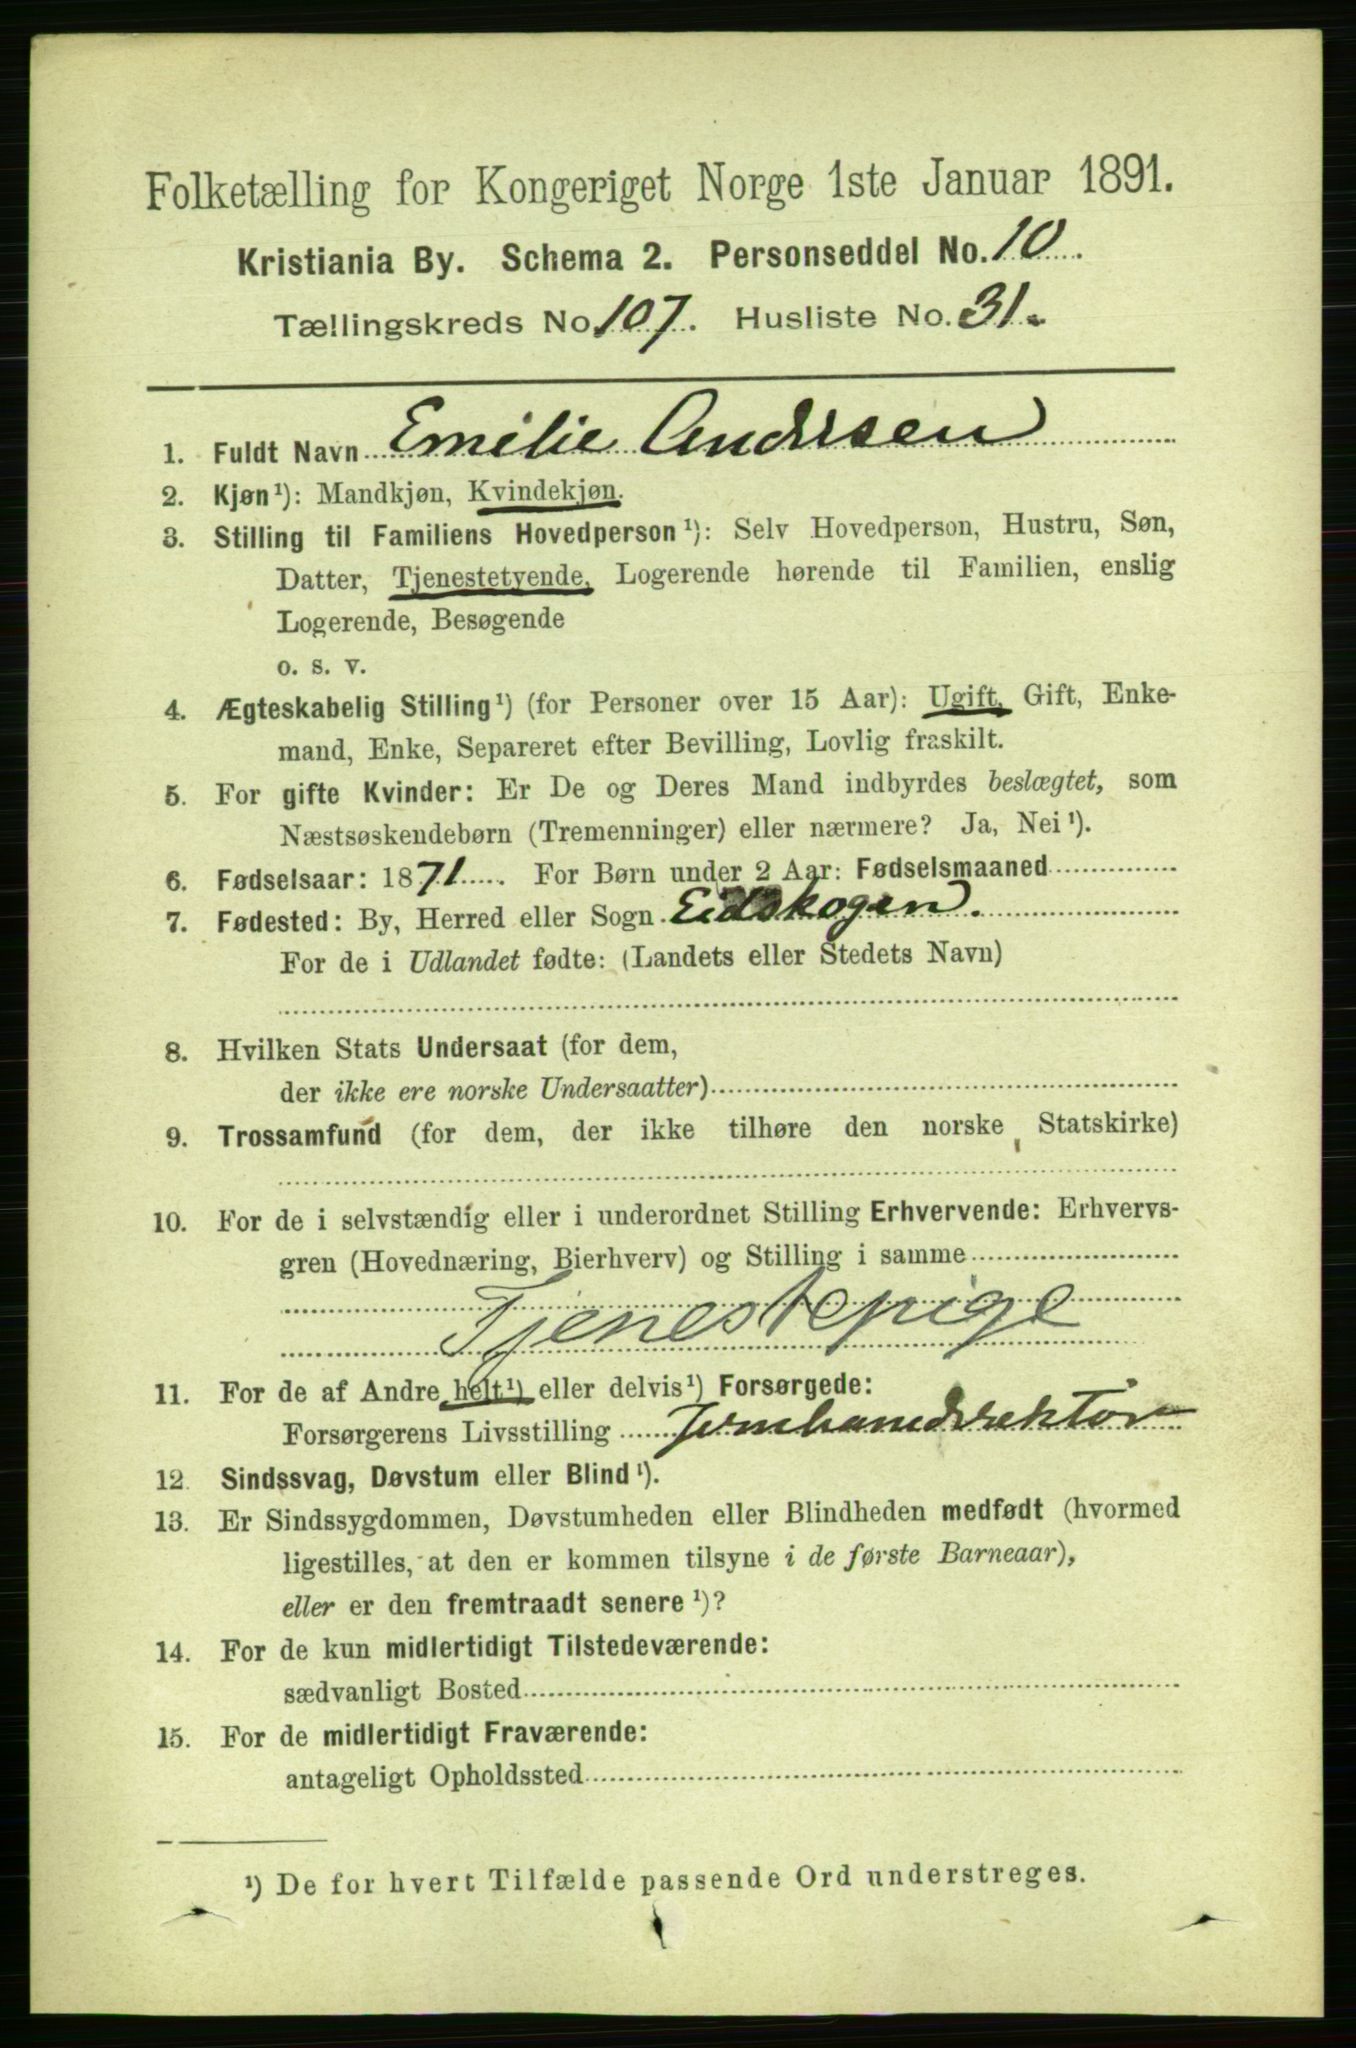 Folketælling for Kongeriget Norge 1ste Januar 1891.
Kristiania By. Schema 2. Personseddel No. 10.
Tællingskreds No. 107. Husliste No. 31.
1. Fuldt Navn Emilie Andersen
2. Kjøn¹): Mandkjøn, Kvindekjøn.
3. Stilling til Familiens Hovedperson¹): Selv Hovedperson, Hustru, Søn,
Datter, Tjenestetyende, Logerende hørende til Familien, enslig
Logerende, Besøgende
o. s. v.
4. Ægteskabelig Stilling¹) (for Personer over 15 Aar): Ugift, Gift, Enke-
mand, Enke, Separeret efter Bevilling, Lovlig fraskilt.
5. For gifte Kvinder: Er De og Deres Mand indbyrdes beslægtet, som
Næstsøskendebørn (Tremenninger) eller nærmere? Ja, Nei¹).
6. Fødselsaar: 1871. For Børn under 2 Aar: Fødselsmaaned
7. Fødested: By, Herred eller Sogn Eidskogen.
For de i Udlandet fødte: (Landets eller Stedets Navn)
8. Hvilken Stats Undersaat (for dem,
der ikke ere norske Undersaatter)
9. Trossamfund (for dem, der ikke tilhøre den norske Statskirke)
10. For de i selvstændig eller i underordnet Stilling Erhvervende: Erhvervs-
gren (Hovednæring, Bierhverv) og Stilling i samme
Tjenestepige
11. For de af Andre helt¹) eller delvis¹) Forsørgede:
Forsørgerens Livsstilling Jernbanedirektør
12. Sindssvag, Døvstum eller Blind¹).
13. Er Sindssygdommen, Døvstumheden eller Blindheden medfødt (hvormed
ligestilles, at den er kommen tilsyne i de første Barneaar),
eller er den fremtraadt senere¹)?
14. For de kun midlertidigt Tilstedeværende:
sædvanligt Bosted
15. For de midlertidigt Fraværende:
antageligt Opholdssted
¹) De for hvert Tilfælde passende Ord understreges.